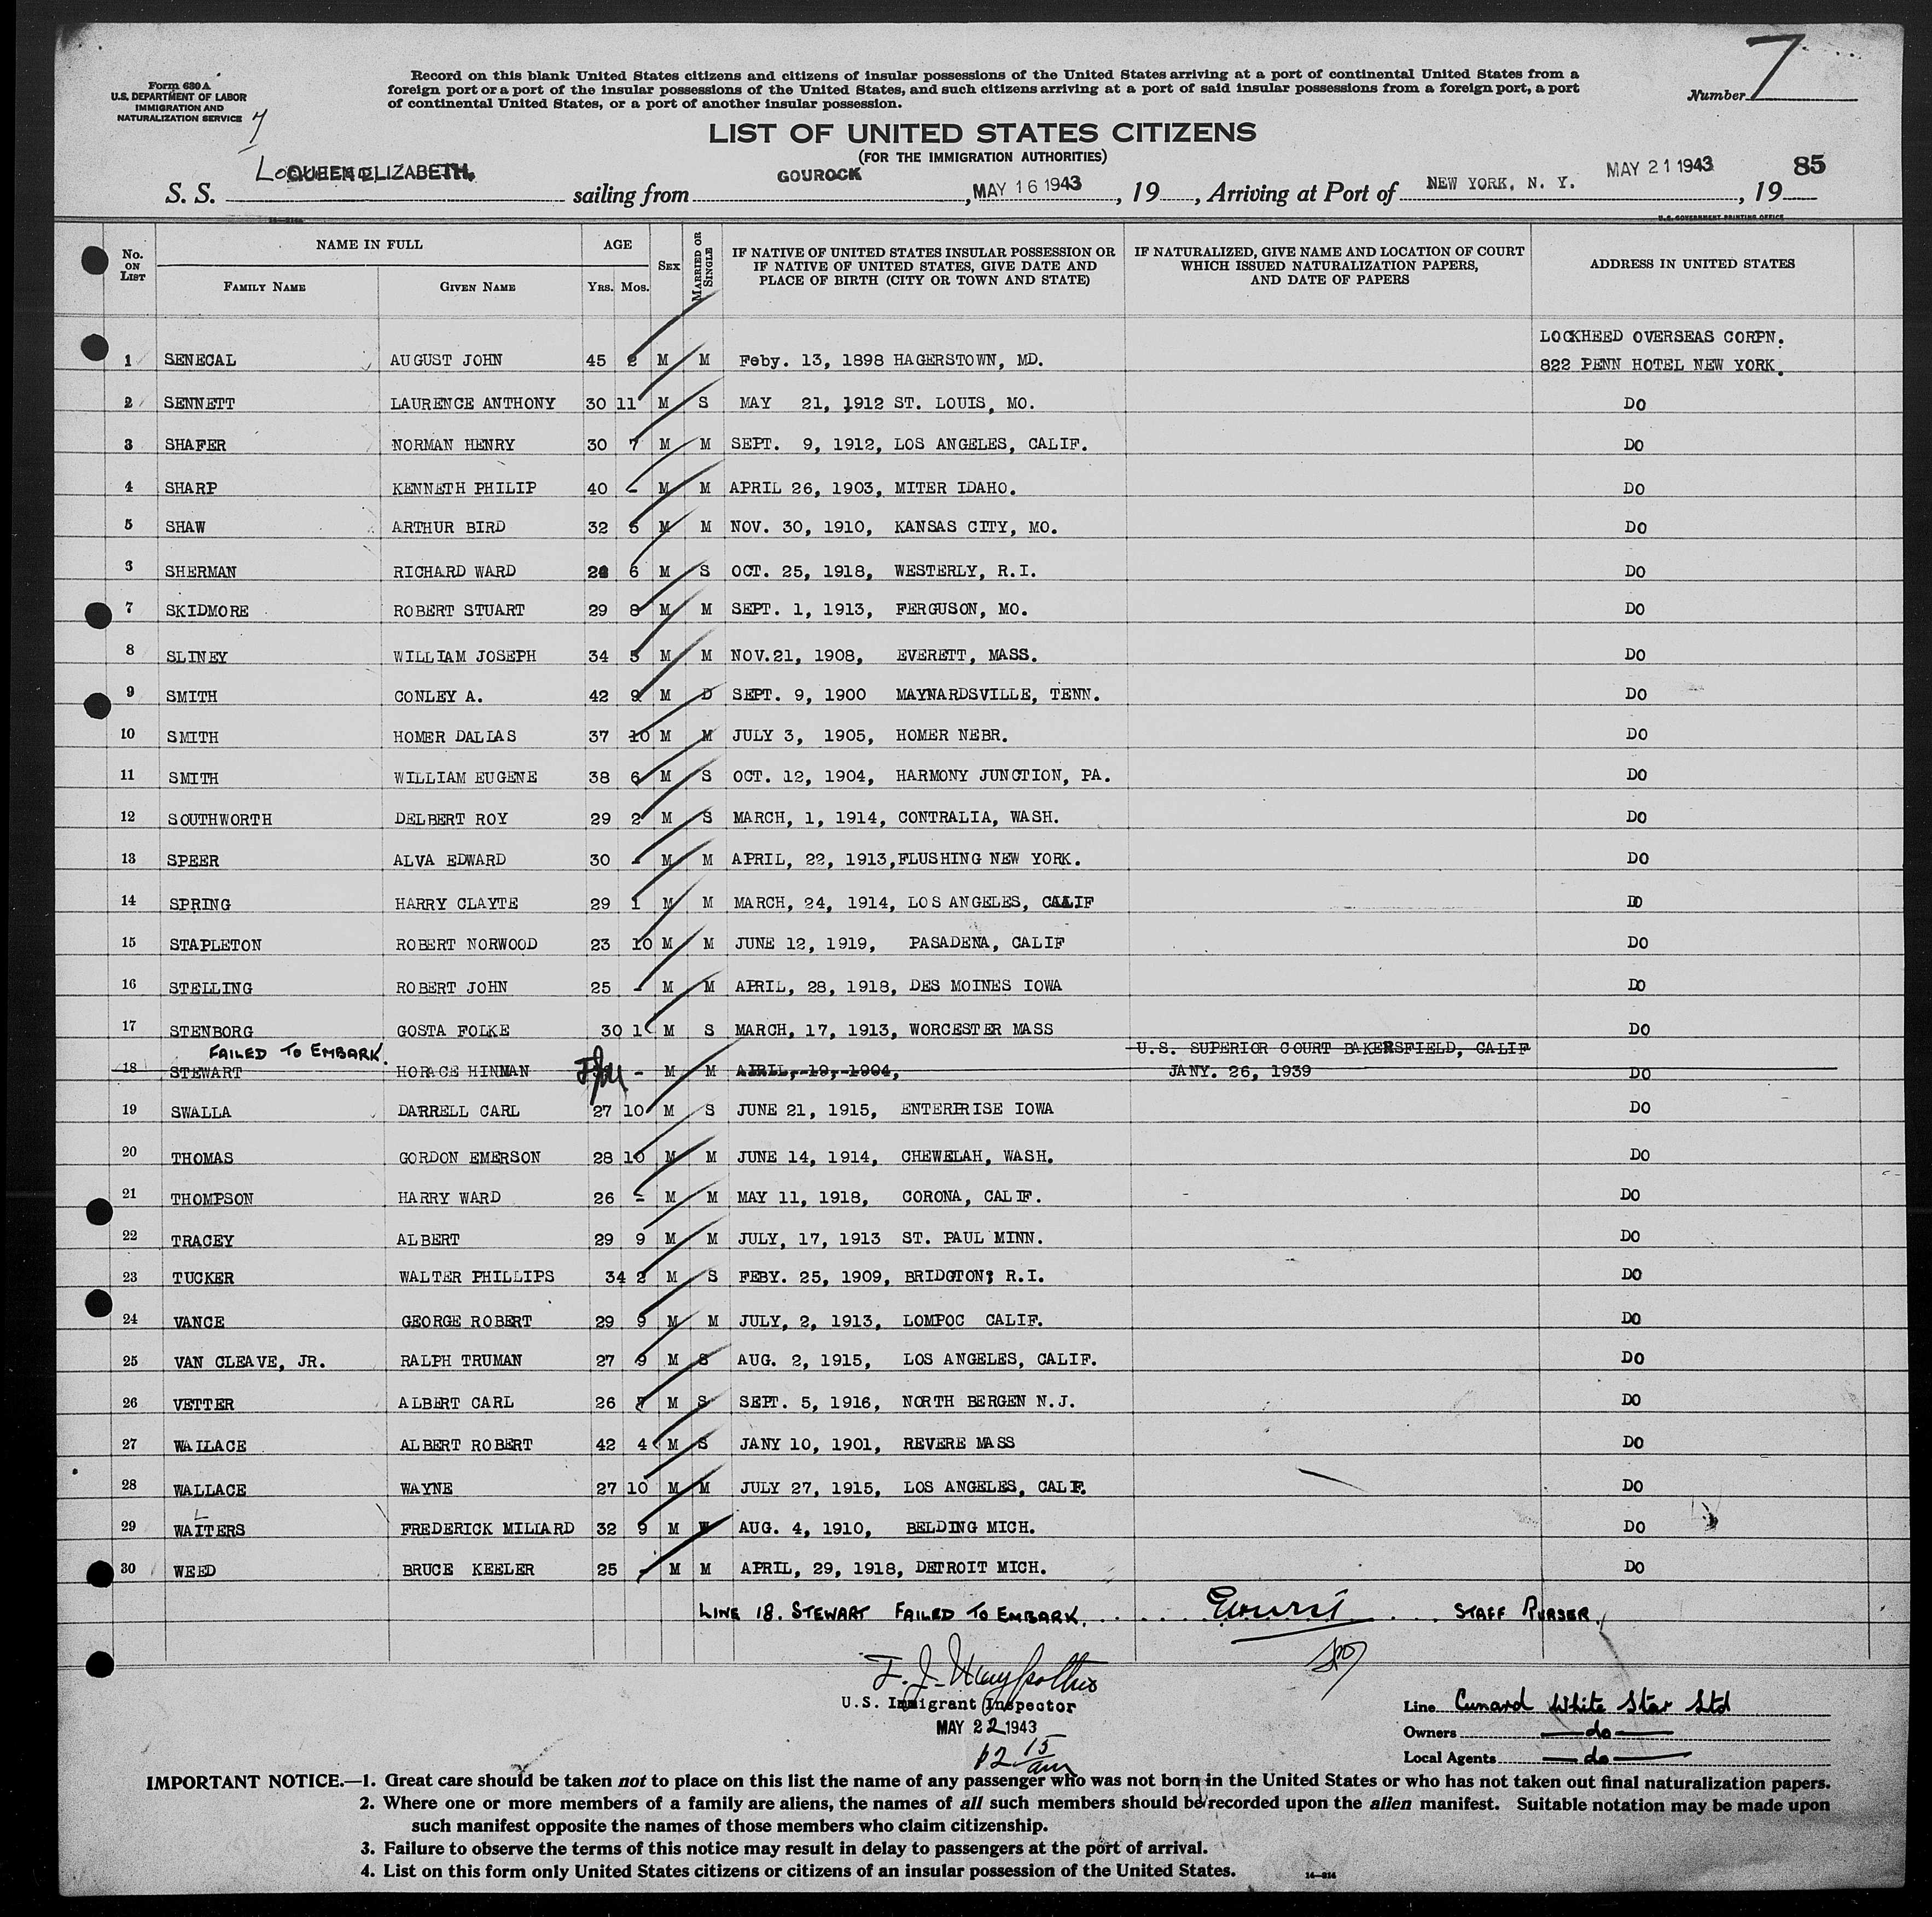 7
Form 630 A
U.S. DEPARTMENT OF LABOR
IMMIGRATION AND
NATURALIZATION SERVICE
7
Record on this blank United States citizens and citizens of insular possessions of the United States arriving at a port of continental United States from a
foreign port or a port of the insular possessions of the United States, and such citizens arriving at a port of said insular possessions from a foreign port, a port
of continental United States, or a port of another insular possession.
Number
LIST OF UNITED STATES CITIZENS
(FOR THE IMMIGRATION AUTHORITIES)
S. S. QUEEN ELIZABETH. sailing from GOUROCK, MAY 16 1943, 19, Arriving at Port of NEW YORK, N. Y. MAY 21 1943, 19 85
U.S. GOVERNMENT PRINTING OFFICE
No. ON LIST NAME IN FULL AGE SEX MARRIED OR SINGLE IF NATIVE OF UNITED STATES INSULAR POSSESSION OR IF NATIVE OF UNITED STATES, GIVE DATE AND PLACE OF BIRTH (CITY OR TOWN AND STATE) IF NATURALIZED, GIVE NAME AND LOCATION OF COURT WHICH ISSUED NATURALIZATION PAPERS, AND DATE OF PAPERS ADDRESS IN UNITED STATES
FAMILY NAME GIVEN NAME YRS. MOS.
LOCKHEED OVERSEAS CORPN.
1 SENECAL AUGUST JOHN 45 2 M M Feby. 13, 1898 HAGERSTOWN, MD. 822 PENN HOTEL NEW YORK.
2 SENNETT LAURENCE ANTHONY 30 11 M S MAY 21, 1912 ST. LOUIS, MO. DO
3 SHAFER NORMAN HENRY 30 7 M M SEPT. 9, 1912, LOS ANGELES, CALIF. DO
4 SHARP KENNETH PHILIP 40 - M M APRIL 26, 1903, MITER IDAHO. DO
5 SHAW ARTHUR BIRD 32 5 M M NOV. 30, 1910, KANSAS CITY, MO. DO
6 SHERMAN RICHARD WARD 24 6 M S OCT. 25, 1918, WESTERLY, R.I. DO
7 SKIDMORE ROBERT STUART 29 8 M M SEPT. 1, 1913, FERGUSON, MO. DO
8 SLINEY WILLIAM JOSEPH 34 5 M M NOV.21, 1908, EVERETT, MASS. DO
9 SMITH CONLEY A. 42 9 M D SEPT. 9, 1900 MAYNARDSVILLE, TENN. DO
10 SMITH HOMER DALLAS 37 10 M M JULY 3, 1905, HOMER NEBR. DO
11 SMITH WILLIAM EUGENE 38 6 M S OCT. 12, 1904, HARMONY JUNCTION, PA. DO
12 SOUTHWORTH DELBERT ROY 29 2 M S MARCH, 1, 1914, CONTRALIA, WASH. DO
13 SPEER ALVA EDWARD 30 - M M APRIL, 22, 1913,FLUSHING NEW YORK. DO
14 SPRING HARRY CLAYTE 29 1 M M MARCH, 24, 1914, LOS ANGELES, CALIF DO
15 STAPLETON ROBERT NORWOOD 23 10 M M JUNE 12, 1919, PASADENA, CALIF DO
16 STELLING ROBERT JOHN 25 - M M APRIL, 28, 1918, DES MOINES IOWA DO
17 STENBORG GOSTA FOLKE 30 1 M S MARCH, 17, 1913, WORCESTER MASS DO
FAILED TO EMBARK. U.S. SUPERIOR COURT BAKERSFIELD, CALIF
18 STEWART HORACE HINMAN - M M APRIL, 19, 1904, JANY. 26, 1939 DO
19 SWALLA DARRELL CARL 27 10 M S JUNE 21, 1915, ENTERPRISE IOWA DO
20 THOMAS GORDON EMERSON 28 10 M M JUNE 14, 1914, CHEWELAH, WASH. DO
21 THOMPSON HARRY WARD 26 - M M MAY 11, 1918, CORONA, CALIF. DO
22 TRACEY ALBERT 29 9 M M JULY, 17, 1913 ST. PAUL MINN. DO
23 TUCKER WALTER PHILLIPS 34 2 M S FEBY. 25, 1909, BRIDGTON, R.I. DO
24 VANCE GEORGE ROBERT 29 9 M M JULY, 2, 1913, LOMPOC CALIF. DO
25 VAN CLEAVE, JR. RALPH TRUMAN 27 9 M S AUG. 2, 1915, LOS ANGELES, CALIF. DO
26 VETTER ALBERT CARL 26 7 M S SEPT. 5, 1916, NORTH BERGEN N.J. DO
27 WALLACE ALBERT ROBERT 42 4 M S JANY 10, 1901, REVERE MASS DO
28 WALLACE WAYNE 27 10 M M JULY 27, 1915, LOS ANGELES, CALF. DO
29 WALTERS FREDERICK MILLARD 32 9 M W AUG. 4, 1910, BELDING MICH. DO
30 WEED BRUCE KEELER 25 - M M APRIL, 29, 1918, DETROIT MICH. DO
LINE 18. STEWART FAILED TO EMBARK. STAFF PURSER.
U.S. Immigrant Inspector
MAY 22 1943
12 15 am
Line Cunard White Star Ltd
Owners do
Local Agents do
IMPORTANT NOTICE.—1. Great care should be taken not to place on this list the name of any passenger who was not born in the United States or who has not taken out final naturalization papers.
2. Where one or more members of a family are aliens, the names of all such members should be recorded upon the alien manifest. Suitable notation may be made upon
such manifest opposite the names of those members who claim citizenship.
3. Failure to observe the terms of this notice may result in delay to passengers at the port of arrival.
4. List on this form only United States citizens or citizens of an insular possession of the United States.